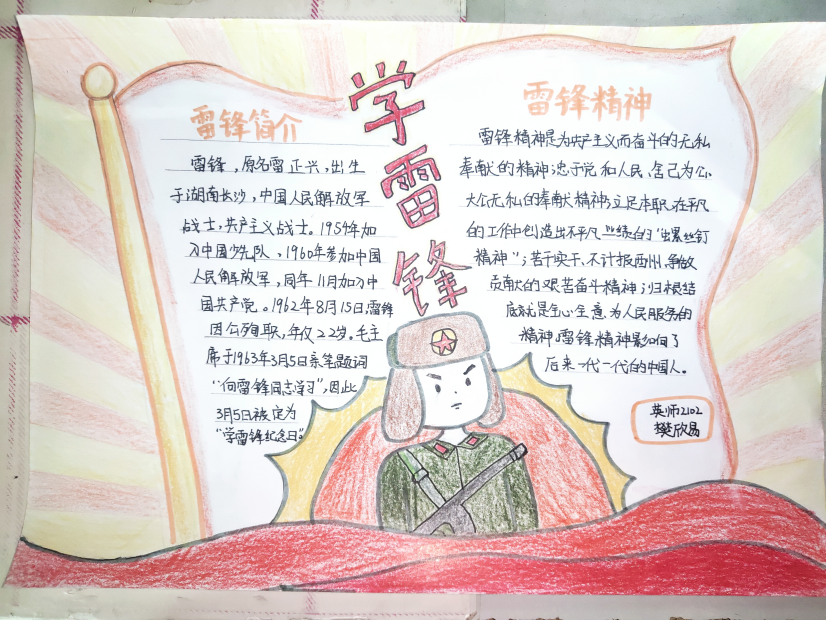 学雷锋
雷锋简介
雷锋，原名雷正兴，出生
于湖南长沙，中国人民解放军
战士，共产主义战士。1954年加
入中国少先队，1960年参加中国
人民解放军，同年11月加入中
国共产党。1962年8月15日，雷锋
因公殉职，年仅22岁。毛主
席于1963年3月5日亲笔题词
“向雷锋同志学习”，因此
3月5日被定为
“学雷锋纪念日”。
雷锋精神
雷锋精神是为共产主义而奋斗的无私
奉献的精神；忠于党和人民、舍己为公、
大公无私的奉献精神；立足本职、在平凡
的工作中创造出不平凡业绩的“螺丝钉
精神”；苦干实干、不计报酬、争做
贡献的艰苦奋斗精神；归根结
底就是全心全意为人民服务的
精神。雷锋精神影响了
后来一代一代的中国人。
英师2102
樊欣易